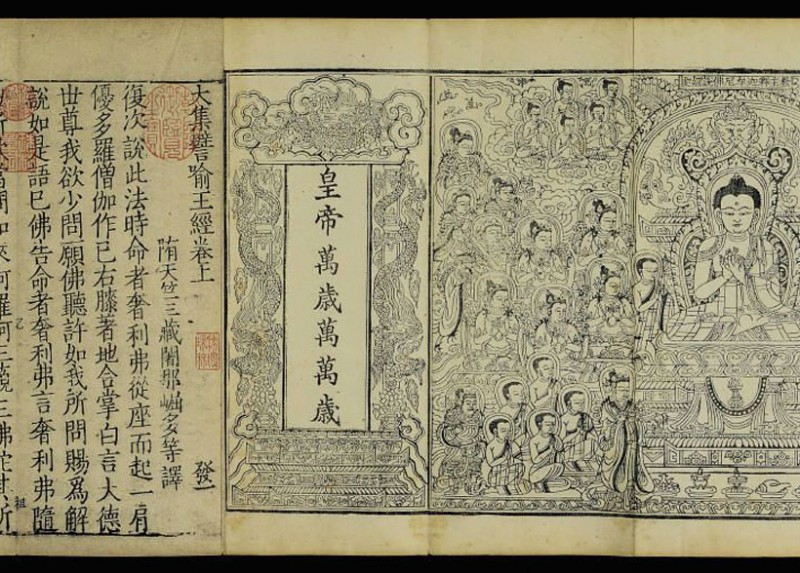 皇帝萬歳萬萬歳
大集譬喻王經卷上 發一
隋天竺三藏闍那崛多等譯
復次說此法時命者奢利弗從座而起一肩
優多羅僧伽作已右膝著地合掌白言大德
世尊我欲少問願佛聽許如我所問賜爲解
說如是語已佛告命者奢利弗言奢利弗隨